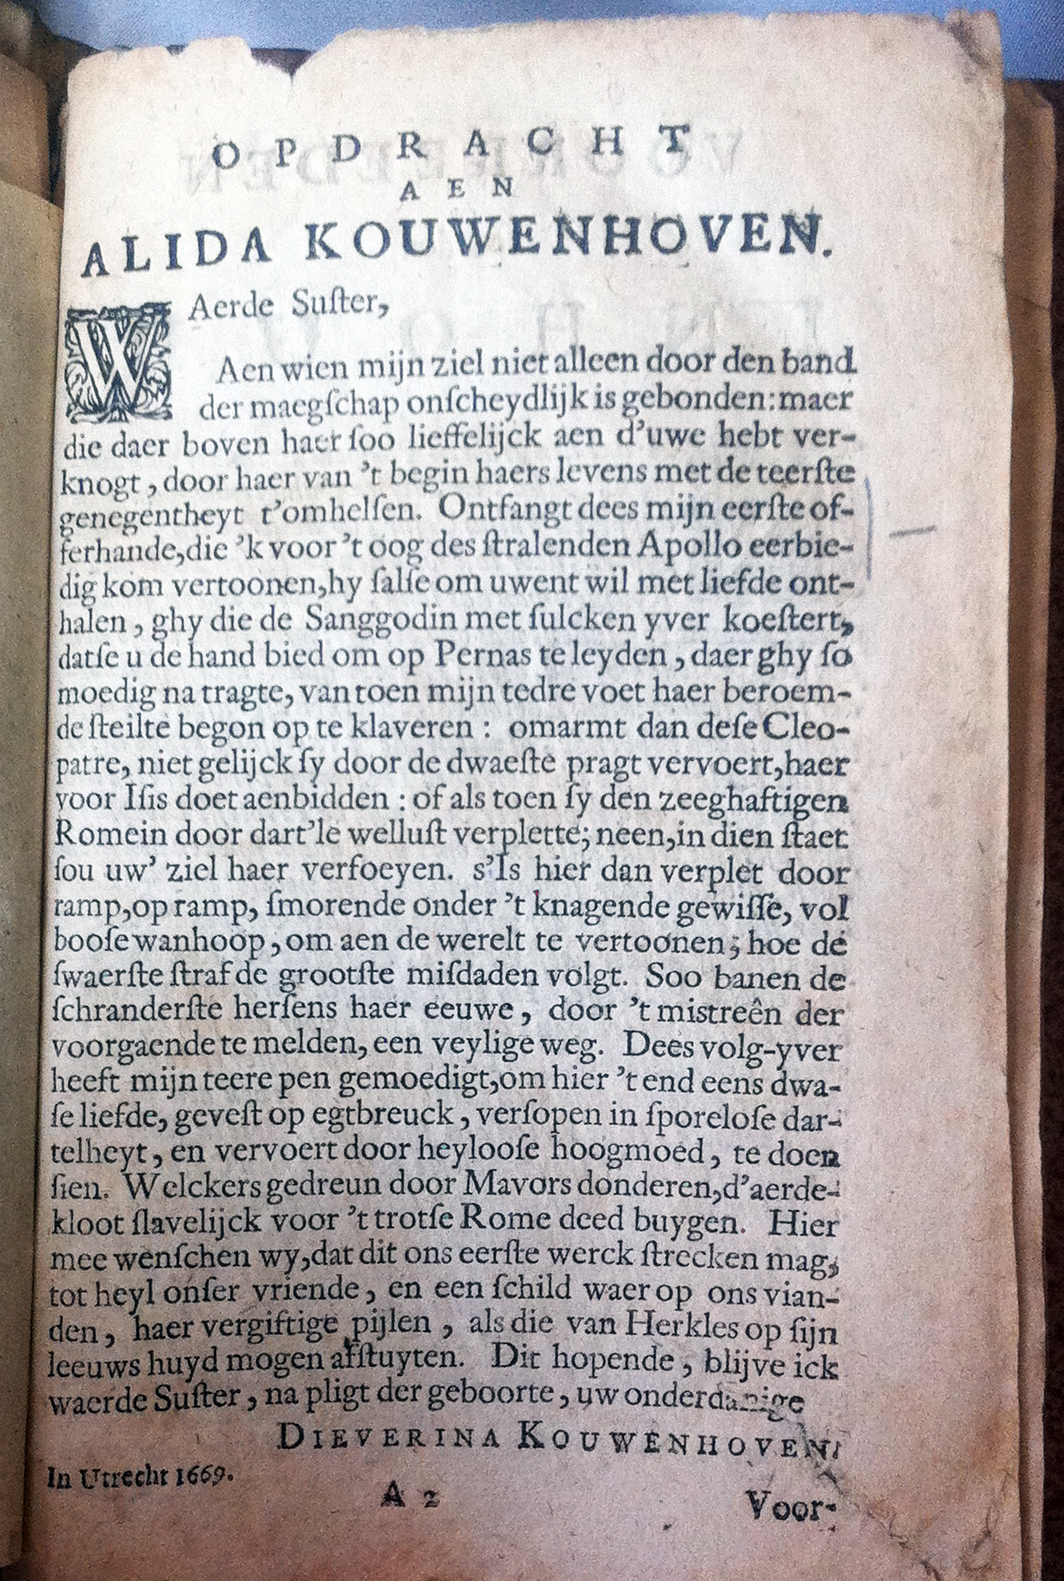 OPDRACHT
AEN
ALIDA KOUWENHOVEN.
WAerde Suſter,
Aen wien mijn ziel niet alleen door den band
der maegſchap onſcheydlijk is gebonden: maer
die daer boven haer ſoo lieffelijck aen d'uwe hebt ver-
knogt, door haer van 't begin haers levens met de teerſte
genegentheyt t'omhelſen. Ontfangt dees mijn eerſte of-
ferhande, die 'k voor 't oog des ſtralenden Apollo eerbie-
dig kom vertoonen, hy ſalſe om uwent wil met liefde ont-
halen, ghy die de Sanggodin met ſulcken yver koeſtert,
datſe u de hand bied om op Pernas te leyden, daer ghy ſo
moedig na tragte, van toen mijn tedre voet haer beroem-
de ſteilte begon op te klaveren: omarmt dan deſe Cleo-
patre, niet gelijck ſy door de dwaeſte pragt vervoert, haer
voor Iſis doet aenbidden: of als toen ſy den zeeghaftigen
Romein door dart'le welluſt verplette; neen, in dien ſtaet
ſou uw' ziel haer verfoeyen. s'Is hier dan verplet door
ramp, op ramp, ſmorende onder 't knagende gewiſſe, vol
booſe wanhoop, om aen de werelt te vertoonen; hoe de
ſwaerſte ſtraf de grootſte miſdaden volgt. Soo banen de
ſchranderſte herſens haer eeuwe, door 't mistreên der
voorgaende te melden, een veylige weg. Dees volg-yver
heeft mijn teere pen gemoedigt, om hier 't end eens dwa-
ſe liefde, geveſt op egtbreuck, verſopen in ſporeloſe dar-
telheyt, en vervoert door heylooſe hoogmoed, te doen
ſien. Welckers gedreun door Mavors donderen, d'aerde-
kloot ſlavelijck voor 't trotſe Rome deed buygen. Hier
mee wenſchen wy, dat dit ons eerſte werck ſtrecken mag,
tot heyl onſer vriende, en een ſchild waer op ons vian-
den, haer vergiftige pijlen, als die van Herkles op ſijn
leeuws huyd mogen afſtuyten. Dit hopende, blijve ick
waerde Suſter, na pligt der geboorte, uw onderdanige
DIEVERINA KOUWENHOVEN.
In Utrecht 1669.
A 2
Voor-